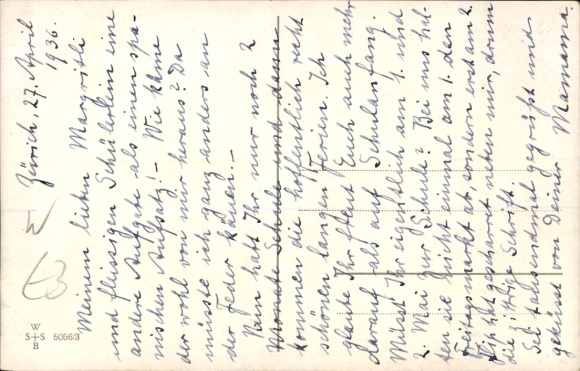 Zürich, 27. April
1936.
Meinem lieben Margritli
und fleissigen Schülerlein eine
andre Aufgabe als einen spa-
nischen Aufsatz! – Wie käme
der wohl von mir heraus? Da
müsste ich ganz anders an
der Feder kauen. –
Nun habt Ihr nur noch 2
Monate Schule und dann
kommen die hoffentlich recht
schönen langen Ferien. Ich
glaube Ihr freut Euch auch mehr
darauf als auf Schulanfang.
Müsst Ihr eigentlich am 1. und
2. Mai zur Schule? Bei uns hal-
ten sie nicht einmal am 1. den
Freitagsmarkt ab, sondern erst am 2.
sitzt neben mir, drum
die Schrift.
Sei tausendmal gegrüsst und
geküsst von Deiner Mamama.
W
S+S
B
5056/3